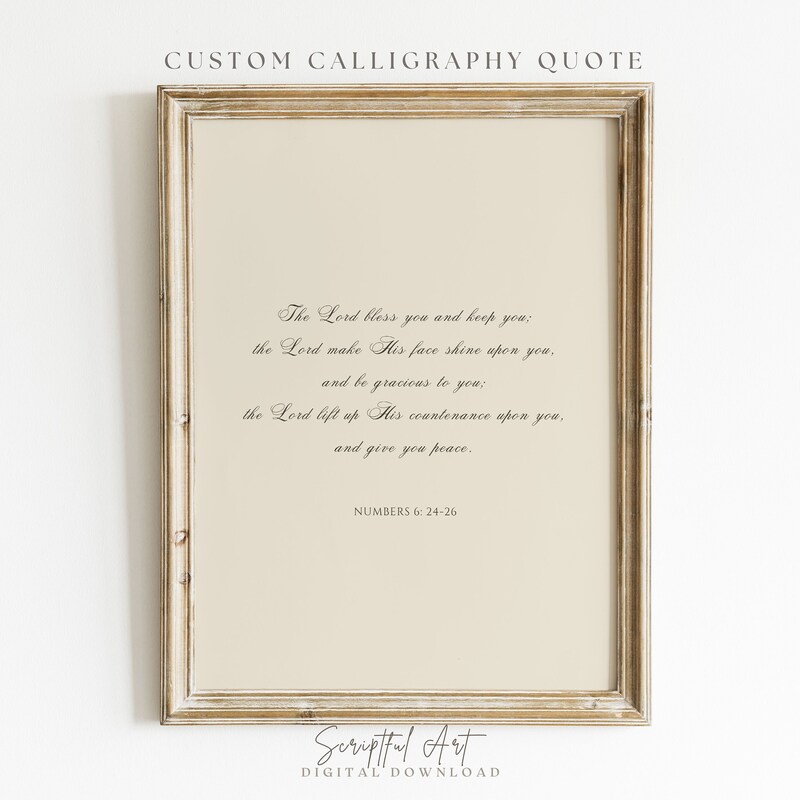 CUSTOM CALLIGRAPHY QUOTE
The Lord bless you and keep you;
the Lord make His face shine upon you,
and be gracious to you;
the Lord lift up His countenance upon you,
and give you peace.
NUMBERS 6: 24-26
Scriptful Art
DIGITAL DOWNLOAD